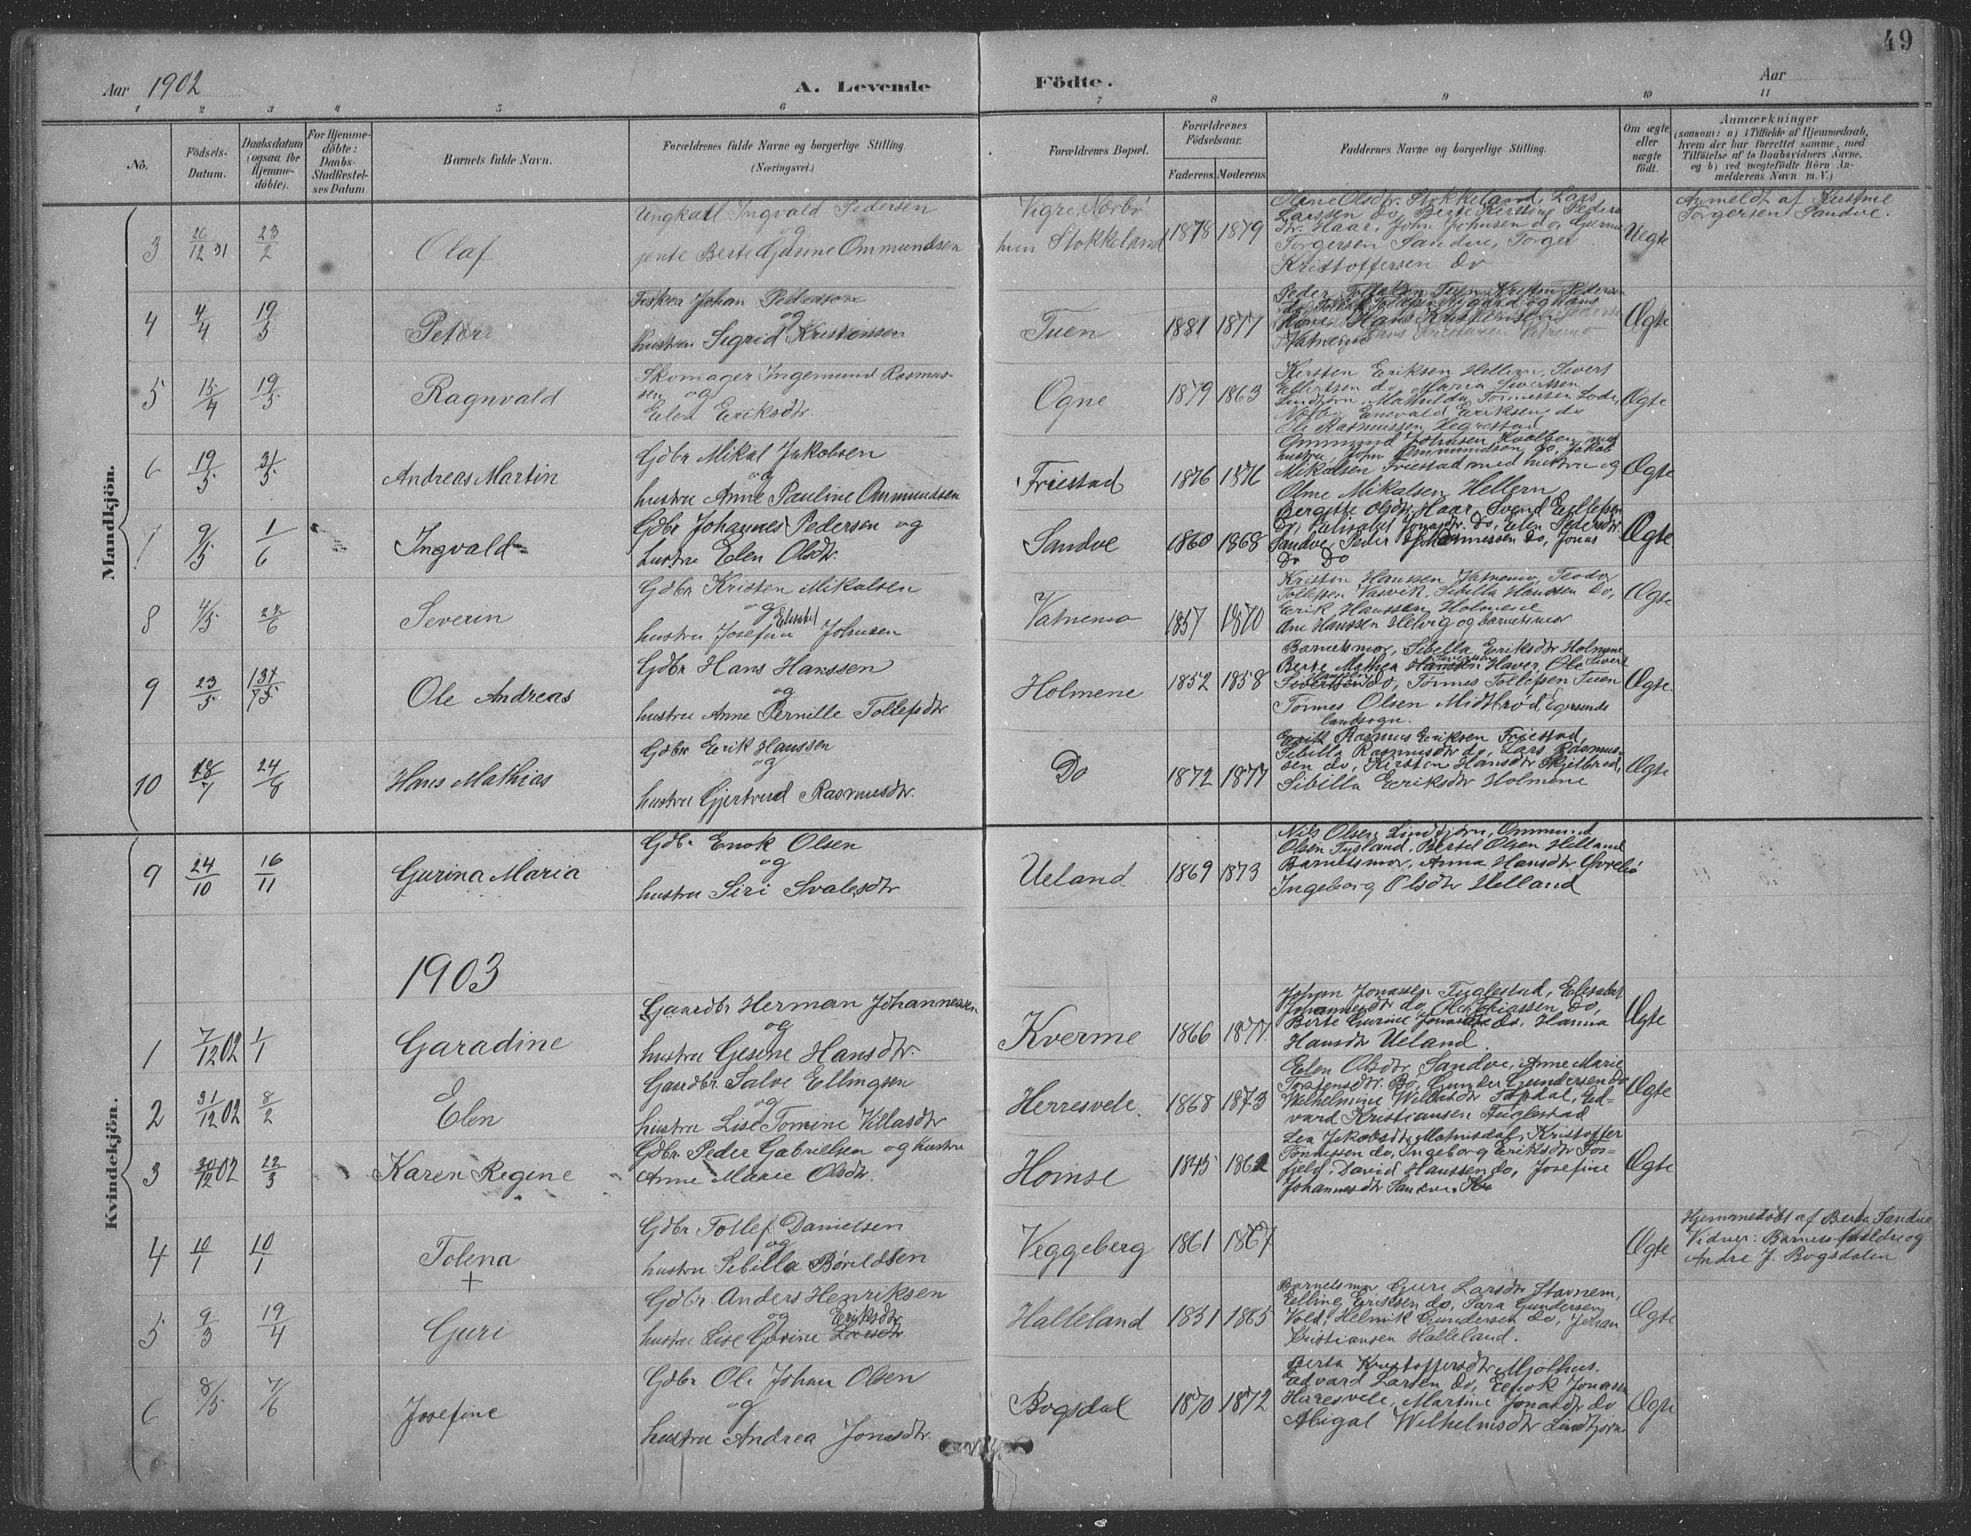 49
Aar 1902
A. Levende Födte.
Aar
1 2 3 4 5 6 7 8 9 10 11
No.
Födsels-Datum.
Daabsdatum (ogsaa for Hjemme-döbte).
For Hjemme-döbte: Daabs-Stadfæstel-ses Datum
Barnets fulde Navn.
Forældrenes fulde Navne og borgerlige Stilling.
(Næringsvei.)
Forældrenes Bopæl.
Forældrenes Födselsaar.
Faderens. Moderens.
Faddernes Navne og borgerlige Stilling.
Om ægte eller uægte födt.
Anmærkninger
(saasom: a) i Tilfælde af Hjemmedaab,
hvem der har forrettet samme, med
Tilföielse af to Daabsvidners Navne,
og b) ved uegtefödte Börn An-
melderens Navn m. V.)
Mandkjön.
3 26/12 01 23/2 Olaf
Ungkarl Ingvald Pedersen
og
pente Berte Gurine Ommundsen
Vigre, Nærbö
hun Stokkeland
1878 1879
Olsdtr. Stokkeland, Lars
Larssen do, Berte Kirstine Peders
dtr. Haar, John Johnsen do,
Torgersen Sandve, Torger
Kristoffersen do
Uegte
Anmeldt af Kirstine
Torgersen Sandve.
4 4/4 19/5 Peder
Fisker Johan Pederson
og
hustru Sigrid Kristensen
Tuen
1881 1877
Ægte
5 15/4 19/5 Ragnvald
Skomager Ingemund Rasmus-
sen og
Elen Eriksdtr.
Ogne
1879 1863
Kirsten Eriksen Hellern, Sivert
Ellertsen do, Maria Sivertsen
Lindtjörn, Mathilde Tönnessen Lode,
Nærbö, Enevald Eriksen do
Ole Rasmussen Hegrestad
Ægte
6 19/5 31/5 Andreas Martin
Gdbr Mikal Jakobsen
og
hustru Anne Pauline Ommundsen
Friestad
1876 1876
Ommund Johnsen Kvalbein med
hustru, John Ommundsen do, Jakob
Mikalsen Friestad med hustru og
Olene Mikalsen Hellern
Ægte
7 9/5 1/6 Ingvald
Gdbr Johannes Pedersen og
hustru Elen Olsdtr.
Sandve
1860 1868
Bergitte Olsdtr Haar, Svend Eellefsen
Do, Jonasdtr. Do, Elen Pedersdtr
Sandve, Peder Johannessen Do, Jonas
Do Do
Ægte
8 4/5 24/6 Severin
Gdbr Kristen Mikalsen
og Elisabet
hustru Josefine Johnsen
Vatnemo
1857 1870
Kristen Hanssen Vatnemo, Teodor
Tollefsen Vasvik, Sibilla Hanssen do,
Erik Hanssen Holmene
Ane Hanssen Helvig og barnetsmor
Ægte
9 23/5 Ole Andreas
Gdbr Hans Hanssen
og
hustru Anne Pernille Tollefsdtr
Holmene
1852 1858
Barnetsmor, Sibella Eriksdtr Holmene
Berte Mathea Haver, Ole Sivert
do, Tönnes Tollefsen Tuen
Tönnes Olsen Midtbröd Egersunds
landsogn.
Ægte
10 18/7 24/8 Hans Mathias
Gdbr Erik Hanssen
og
hustru Gjertrud Rasmusdtr.
Do
1872 1877
Rasmus Eriksen Friestad,
Sibilla Rasmusdtr do, Lars Rasmus-
sen do, Kirsten Hansdtr Skjelbred,
Sibilla Eriksdtr Holmene
Ægte
Kvindekjön.
9 24/10 16/11 Gurina Maria
Gdbr. Enok Olsen
og
hustru Siri Svalesdtr
Ueland
1869 1873
Nils Olsen Lindtjörn, Ommund
Olsen Tysland, Bertel Olsen Helland
Barnetsmor, Anna Hansdtr
Ingeborg Olsdtr Helland
1903
1 7/12 02 1/1 Garadine
Gaardbr Herman Johannessen
og
hustru Gesine Hansdtr.
Kverme
1866 1877.
Johan Jonassen Fuglestad, Elisabet
Johannesdtr do, do,
Berte Gurine do, Hanna
Hansdtr Ueland.
Ægte
2 31/12 02 8/2 Elen
Gaardbr. Salve Ellingsen
og
hustru Lise Tomine Villasdtr
Herresvele.
1868 1873
Elen Olsdtr Sandve, Anne Marie
Torstensdtr. Do, Gunder Gundersen do
Wilhelmine Willasdtr Tapdal, Ed-
vard Kristiansen Fuglestad
Ægte
3 30/12 02 22/3 Karen Regine
Gdbr. Peder Gabrielsen og hustru
Anne Marie Olsdtr.
Homse
1845 1862
Lea Jakobsdtr Matnisdal, Kristoffer
Tönnessen do, Ingeborg Eriksdtr Tos-
fjeld, David Hanssen do, Josefine
Johannesdtr Sandve.
Ægte
4 10/1 10/1 Tolena
+
Gdbr Tollef Danielsen
og
hustru Sibilla Börildsen
Veggeberg
1861 1867
Ægte
Hjemmedöbt af Berta Sandve
Vidner: Barnets foreldre og
Andre J. Bogsdalen
5 9/3 19/4 Guri
Gdbr Anders Henriksen
og Eriksdtr
hustru Lise Gurine
Halleland
1851 1865
Barnetsmor, Guri Larsdtr Stavnem,
Elling Eriksen do, Sara Gundersen
Vold, Helmik Gundersen Do, Johan
Kristiansen Halleland.
Ægte
6 8/5 7/6 Josefine
Gdbr Ole Johan Olsen
og
hustru Andrea Jonasdtr.
Bogsdal
1870 1872
Berta Kristoffersdtr Mjolhus.
Edvard Larsen do, Enok Jonassen
Herresvele, Martine Jonasdtr do
Abigal Wilhelmsdtr Lindtjörn
Ægte